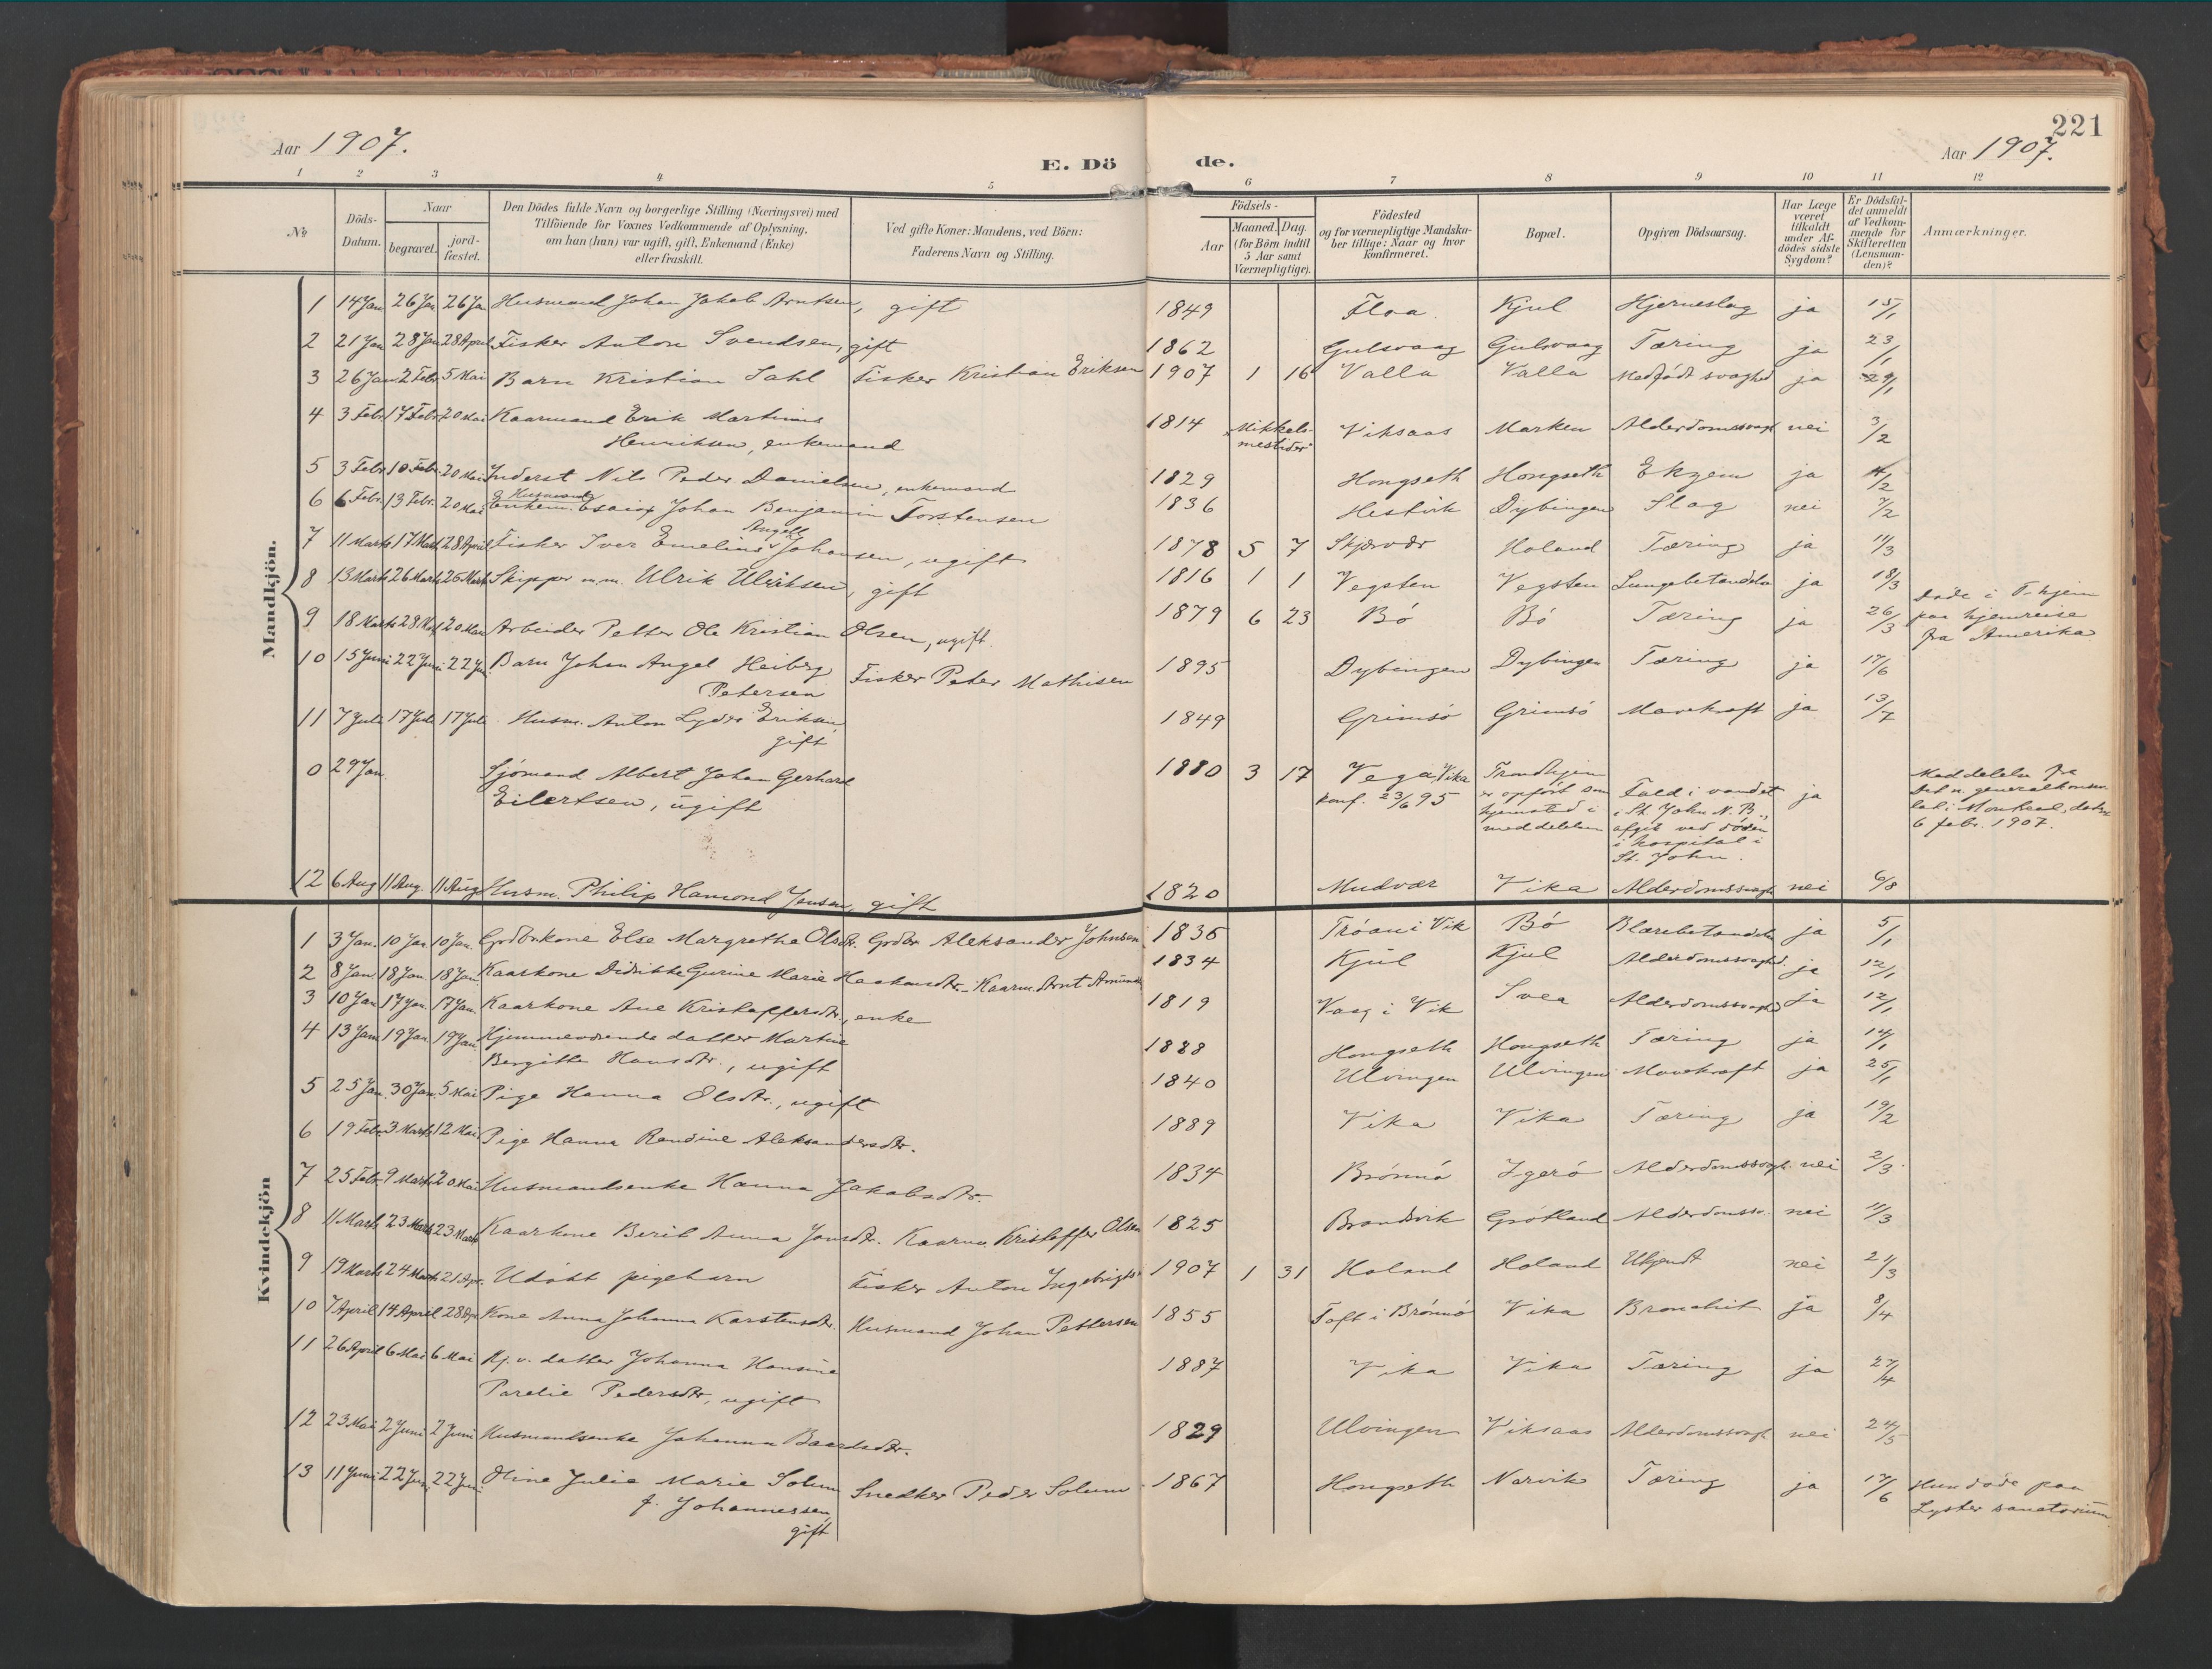 221
Aar 1907.
E. Döde.
Aar 1907.
1 2 3 4 5 6 7 8 9 10 11 12
No
Döds-Datum.
Naar
begravet.
jord-fæstet.
Den Dödes fulde Navn og borgerlige Stilling (Næringsvei) med
Tilföiende for Voxnes Vedkommende af Oplysning,
om han (hun) var ugift, gift, Enkemand (Enke)
eller fraskilt.
Ved gifte Koner: Mandens, ved Börn:
Faderens Navn og Stilling.
Födsels-
Aar
Maaned. Dag.
(for Börn indtil
5 Aar samt
Værnepligtige).
Födested
og for værnepligtige Mandska-
ber tillige: Naar og hvor
konfirmeret.
Bopæl.
Opgiven Dödsaarsag.
Har Læge
været
tilkaldt
under Af-
dödes sidste
Sygdom?
Er Dödsfal-
det anmeldt
af Vedkom-
mende for
Skifteretten
(Lensman-
den)?
Anmærkninger.
Mandkjön.
1 14 Jan 26 Jan 26 Jan Husmand Johan Jakob Arntsen, gift 1849 Floa Kjul Hjerneslag ja 15/1
2 21 Jan 28 Jan 28 April Fisker Anton Svendsen, gift 1862 Gulsvaag Gulsvaag Tæring ja 23/1
3 26 Jan 2 Febr 5 Mai Barn Kristian Dahl Fisker Kristian Eriksen 1907 1 16 Valla Valla Medfødt svaghed ja 29/1
4 3 Febr 17 Febr 20 Mai Kaarmand Erik Martinus
Henriksen, enkemand 1814 "Mikkels-
mestider" Viksaas Marken Alderdomssvagh nei 3/2
5 3 Febr 10 Febr 20 Mai Inderst Nils Peder Danielsen, enkemand 1829 Hongseth Hongseth Ekzem ja 4/2
6 6 Febr. 13 Febr. 20 Mai Enkem. & Husmand Esaias Johan Benjamin Torstensen 1836 Hestvik Dybingen Slag nei 7/2
7 11 Marts 17 Marts 28 April Fisker Iver Emelius Angell Johansen, ugift 1878 5 7 Skjærvær Holand Tæring ja 11/3
8 13 Marts 26 Marts 26 Marts Skipper m.m. Ulrik Ulriksen, gift 1816 1 1 Vegsten Vegsten Lungebetændelse ja 18/3
9 18 Marts 28 Mai 20 Mai Arbeider Petter Ole Kristian Olsen, ugift. 1879 6 23 Bö Bö Tæring ja 26/3 Døde i T.hjem
paa hjemreise
fra Amerika
10 15 Juni 22 Juni 22 Jun Barn Johan Angel Heiberg
Petersen Fisker Peter Mathisen 1895 Dybingen Dybingen Tæring ja 17/6
11 7 Juli 17 Juli 17 Juli Husm. Anton Lyder Eriksen,
gift 1849 Grimsö Grimsö Mavekræft ja 13/7
0 29 Jan. Sjömand Albert Johan Gerhard
Eilertsen, ugift 1880 3 17 Vega, Vika
konf. 23/6 95 Trondhjem
er opfört som
hjemsted i
meddelelsen Fald i vandet
i St. John N.B.,
afgik ved döden
i hospital i
St. John. ja Meddelelse fra
det n. generalkonsu-
lat i Montreal, dat.
6 febr. 1907.
12 6 Aug 11 Aug. 11 Aug Husm. Philip Hamond Jensen, gift 1820 Mudvær Vika Alderdomssvagh nei 6/8
Kvindekjön
1 3 Jan. 10 Jan 10 Jan. Grdbrkone Else Margrethe Olsdtr. Grdbr Aleksander Johnsen 1836 Tröan i Vik Bö Blærebetændelse ja 5/1
2 8 Jan 18 Jan 18 Jan. Kaarkone Didrikke Gurine Marie Haakonsdtr. Kaarm. Arnt 1834 Kjul Kjul Alderdomssvaghd. ja 12/1
3 10 Jan 17 Jan. 17 Jan. Kaarkone Ane Kristoffersdtr., enke 1819 Vaag i Vik Svea Alderdomssvaghd ja 12/1
4 13 Jan 19 Jan 19 Jan. Hjemmeværende datter Martine
Bergitte Hansdtr., ugift 1888 Hongseth Hongseth Tæring ja 14/1
5 25 Jan. 30 Jan. 5 Mai Pige Hanna Olsdtr., ugift 1840 Ulvingen Ulvingen Mavekræft ja 25/1
6 19 Febr. 3 Marts 12 Mai Pige Hanna Randine Aleksandersdtr. 1889 Vika Vika Tæring ja 19/2
7 25 Febr. 9 Marts 20 Mai Husmandsenke Hanna Jakobsdtr. 1834 Brönnö Ygerö Alderdomssvagh. nei 2/3
8 11 Marts 23 Marts 23 Marts Kaarkone Berit Anna Jonsdtr. Kaarm. Kristoffer Olsen 1825 Brandvik Grötland Alderdomssv. nei 11/3
9 19 Marts 24 Marts 21 Apr. Udöbt pigebarn Fisker Anton Ingebrigts. 1907 1 31 Holand Holand Ukjendt nei 21/3
10 7 April 14 April 28 Apr Kone Anna Johanna Karstensdtr. Husmand Johan Pettersen 1855 Toft i Brönnö Vika Bronchit ja 8/4
11 26 April 6 Mai 6 Mai Hj.v. datter Johanna Hansine
Parelie Pedersdtr, ugift 1887 Vika Vika Tæring ja 27/4
12 23 Mai 2 Juni 2 Juni Husmandsenke Johanna Baardsdtr. 1829 Ulvingen Viksaas Alderdomssvagh nei 24/5
13 11 Juni 22 Jun. 22 Jun. Oline Julie Marie Solum
f. Johannessen,
gift Snedker Peder Solum 1867 Hongseth Narvik Tæring ja 17/6 Hun døde paa
Lyster sanatorium.